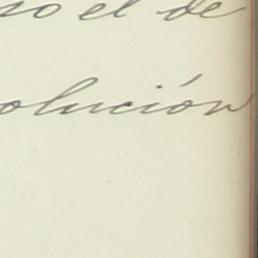 so el de
olución